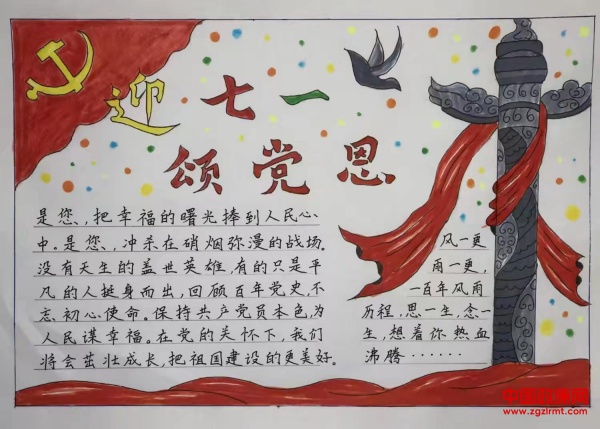 迎七一
颂党恩
是您、把幸福的曙光捧到人民心
中。是您、冲杀在硝烟弥漫的战场。
没有天生的盖世英雄,有的只是平
凡的人挺身而出,回顾百年党史,不
忘初心使命。保持共产党员本色,为
人民谋幸福。在党的关怀下,我们
将会茁壮成长,把祖国建设的更美好。
风一更
雨一更,
一百年风雨
历程,思一生,念一
生,想着你热血
沸腾······
www.zgzlrmt.com